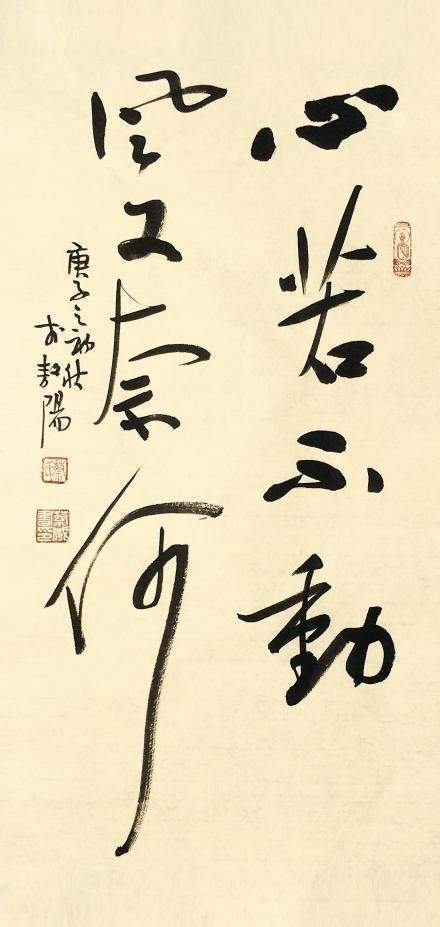 心若不動
風又奈何
庚子之初秋
於陽